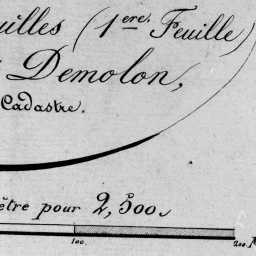 uilles (1ere Feuille)
Demolon,
Cadastre.
ètre pour 2,500.
100. 200. M